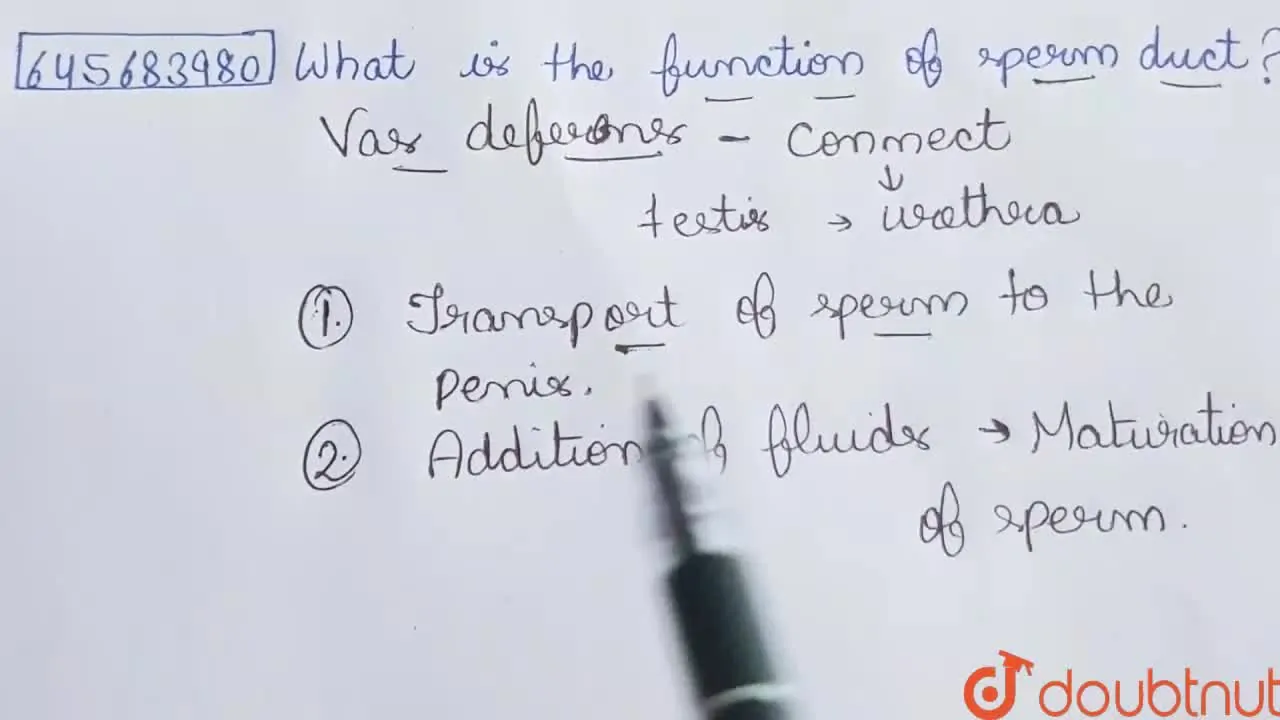 645683980 What is the function of sperm duct?
Vas deferens - Connect
testis → urethra
1. Transport of sperm to the
penis.
2. Addition of fluids → Maturation
of sperm.
doubtnut